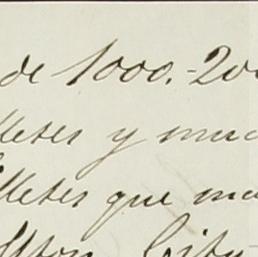 de 1000.-20
lletes y muc
lletes que ma